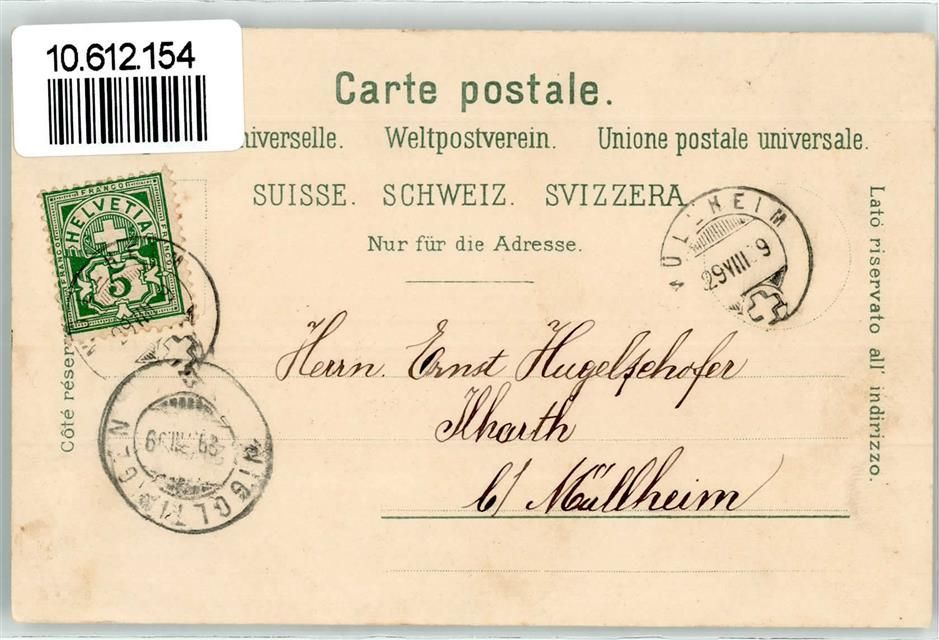 10.612.154
Carte postale.
universelle. Weltpostverein. Unione postale universale.
SUISSE. SCHWEIZ. SVIZZERA
Nur für die Adresse.
Lato riservato all' indirizzo.
Côté réser
FRANCO
HELVETIA
FRANCO
FRANCO
5
MÜLLHEIM
29 VIII 9
WIGOLTINGEN
Herrn. Ernst Hugelschofer
Illharth
b/ Müllheim